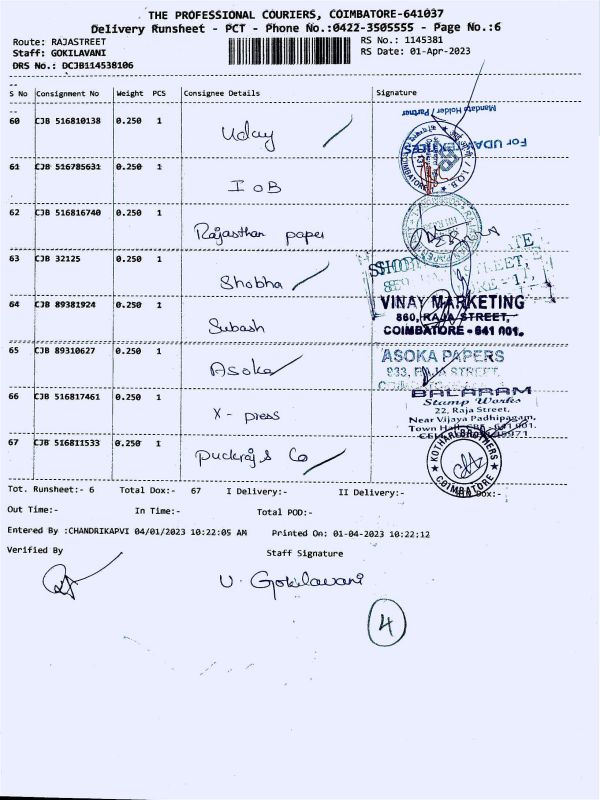 THE PROFESSIONAL COURIERS, COIMBATORE-641037
Delivery Runsheet - PCT - Phone No.:0422-3505555 - Page No.:6
Route: RAJASTREET
RS No.: 1145381
Staff: GOKILAVANI
RS Date: 01-Apr-2023
DRS No.: DCJB114538106
S No Consignment No Weight PCS Consignee Details Signature
Mandate Holder / Partner
60 CJB 516810138 0.250 1 Uday
For UDAY
COIMBATORE
61 CJB 516785631 0.250 1 IOB
I.O.B.
62 CJB 516816740 0.250 1 Rajasthan paper
63 CJB 32125 0.250 1 Shobha
VINAY MARKETING
860, RAJA STREET,
COIMBATORE - 641 001.
64 CJB 89381924 0.250 1 Subash
65 CJB 89310627 0.250 1 Asoka
ASOKA PAPERS
933, RAJA STREET,
66 CJB 516817461 0.250 1 X-press
BALARAM
Stamp Works
22, Raja Street,
Near Vijaya Padhipagam,
Town Hall, CBE - 641 001.
67 CJB 516811533 0.250 1
KOTHARI BROTHERS
COIMBATORE
Tot. Runsheet:- 6 Total Dox:- 67 I Delivery:- II Delivery:- Dox:-
Out Time:- In Time:- Total POD:-
Entered By :CHANDRIKAPVI 04/01/2023 10:22:05 AM Printed On: 01-04-2023 10:22:12
Verified By Staff Signature
V. Gokilavani
4